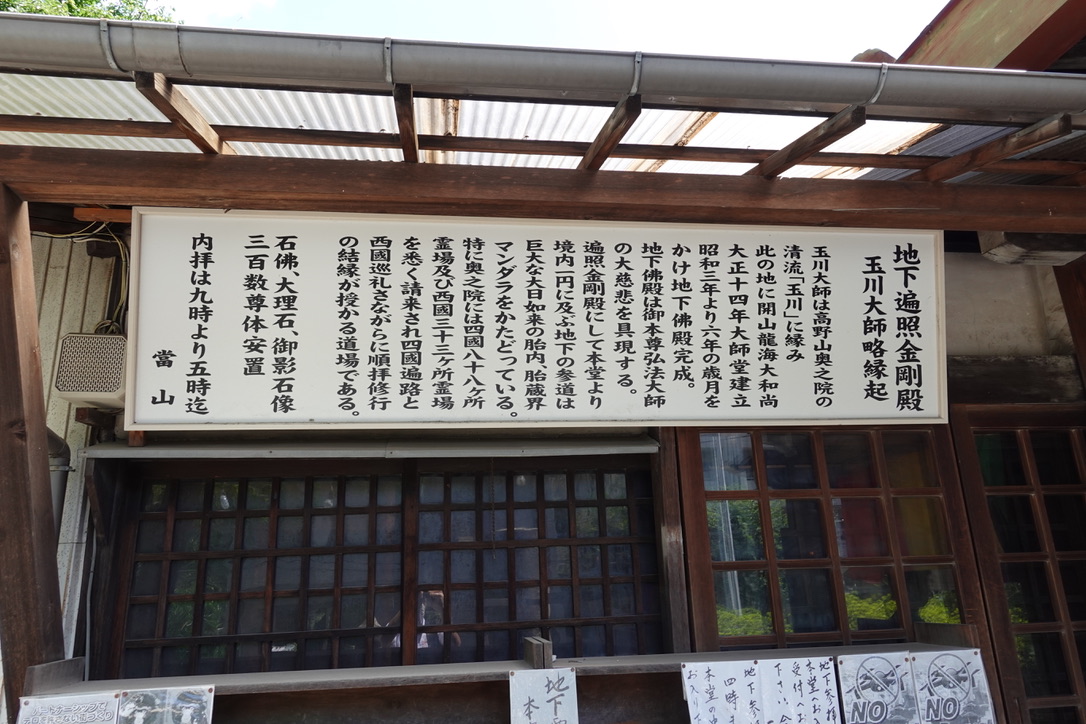 地下遍照金剛殿
玉川大師略縁起
玉川大師は高野山奥之院の
清流「玉川」に縁み
此の地に開山龍海大和尚
大正十四年大師堂建立
昭和三年より六年の歳月を
かけ地下佛殿完成。
地下佛殿は御本尊弘法大師
の大慈悲を具現する。
遍照金剛殿にして本堂より
境内一円に及ぶ地下の参道は
巨大な大日如来の胎内、胎蔵界
マンダラをかたどっている。
特に奥之院には四國八十八ヶ所
霊場及び西國三十三ヶ所霊場
を悉く請来され四國遍路と
西國巡礼さながらに順拝修行
の結縁が授かる道場である。
石佛、大理石、御影石像
三百数尊体安置
内拝は九時より五時迄
當山
NO
NO
地下参拝
受付へお
下さい
地下参
四時ま
本堂の
お入り